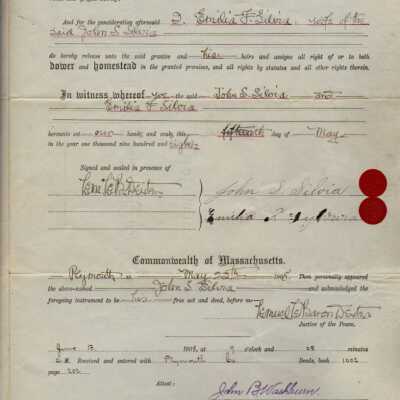 And for the consideration aforesaid I, Emilia F. Silvia, wife of the
said John S. Silvia
do hereby release unto said grantee and his heirs and assigns all right of or to both
dower and homestead in the granted premises, and all rights by statutes and all other rights therein.
In witness whereof we the said John S. Silvia and
Emilia F Silvia
hereunto set our hands and seals this fifteenth day of May
in the year one thousand nine hundred and eight.
Signed and sealed in presence of
John S. Silvia
Emilia
Commonwealth of Massachusetts.
Plymouth ss May 25th 1908. Then personally appeared
the above-named John S. Silvia and acknowledged the
foregoing instrument to be his free act and deed, before me
Justice of the Peace.
June 1908, at 9 o'clock and 28 minutes
M. Received and entered with Plymouth Co Deeds, book 1002
page 202
Attest:
John B Washburn